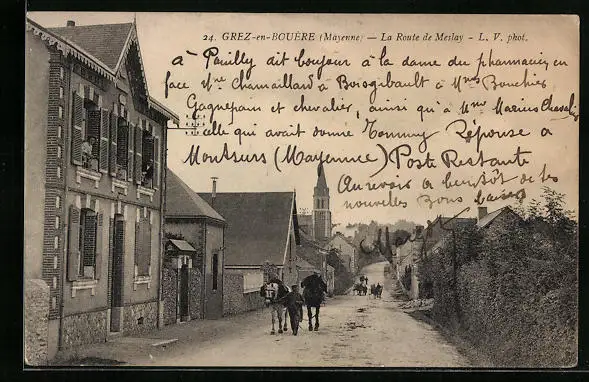 24. GREZ-en-BOUÈRE (Mayenne) — La Route de Meslay - L. V. phot.
à Pailly dit bonjour à la dame du pharmacien en
face Mme Chamaillard à Boisgibault à Mme Bouchier
Gagnepain et chevalier, ainsi qu'à Mme Marius Chevalier
celle qui avait donné Tommy Réponse à
Montsurs (Mayenne) Poste Restante
Au revoir à bientôt de tes
nouvelles Bons baisers